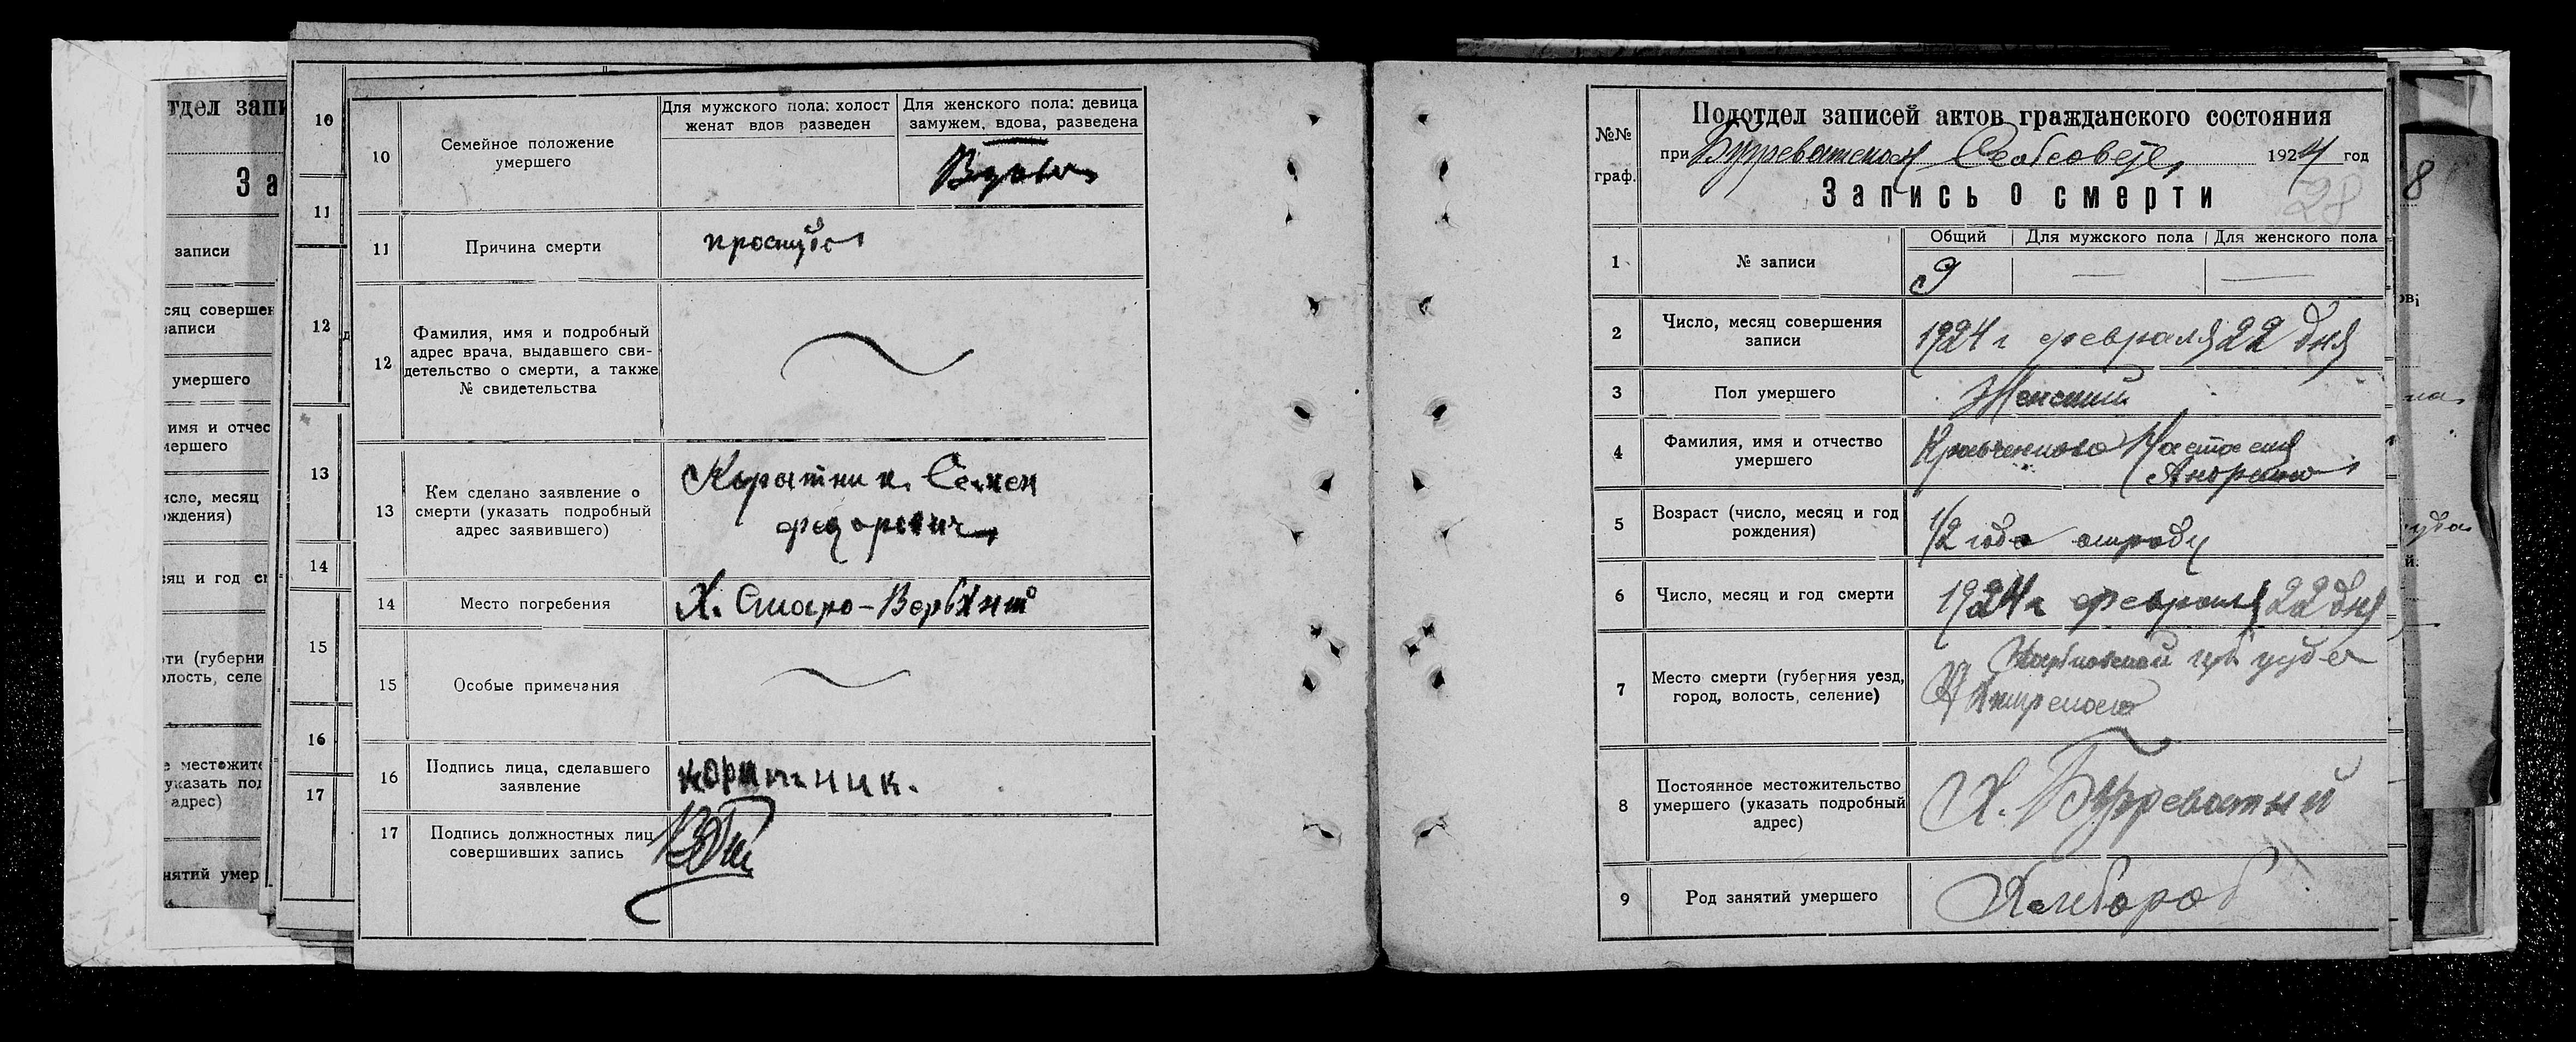 тдел запи
За
записи
сяц совершен
записи
умершего
имя и отчес
мершего
исло, месяц
ождения)
сяц и год с
ти (губерни
олость, селе
е местожите
указать под
адрес)
нятий умер
10
11
12
13
14
15
16
17
10
Семейное положение
умершего
Для мужского пола: холост
женат вдов разведен
Для женского пола: девица
замужем, вдова, разведена
Вдова
11
Причина смерти
простуда
12
Фамилия, имя и подробный
адрес врача, выдавшего сви-
детельство о смерти, а также
№ свидетельства
13
Кем сделано заявление о
смерти (указать подробный
адрес заявившего)
Коратник Семен
федорович
14
Место погребения
Х. Старо-
15
Особые примечания
16
Подпись лица, сделавшего
заявление
коратник.
17
Подпись должностных лиц,
совершивших запись
№№
граф.
Подотдел записей актов гражданского состояния
при Бугреватском Сельсовете 1924 год
Запись о смерти
28
1
№ записи
Общий
Для мужского пола
Для женского пола
9
—
—
2
Число, месяц совершения
записи
1924 г февраля 22 дня
3
Пол умершего
Женский
4
Фамилия, имя и отчество
умершего
Настасия
5
Возраст (число, месяц и год
рождения)
1/2 года отроду
6
Число, месяц и год смерти
1924 г февраля 22 дня
7
Место смерти (губерния уезд,
город, волость, селение)
Харковской губ
8
Постоянное местожительство
умершего (указать подробный
адрес)
Х. Бугреватий
9
Род занятий умершего
Хлебороб
8